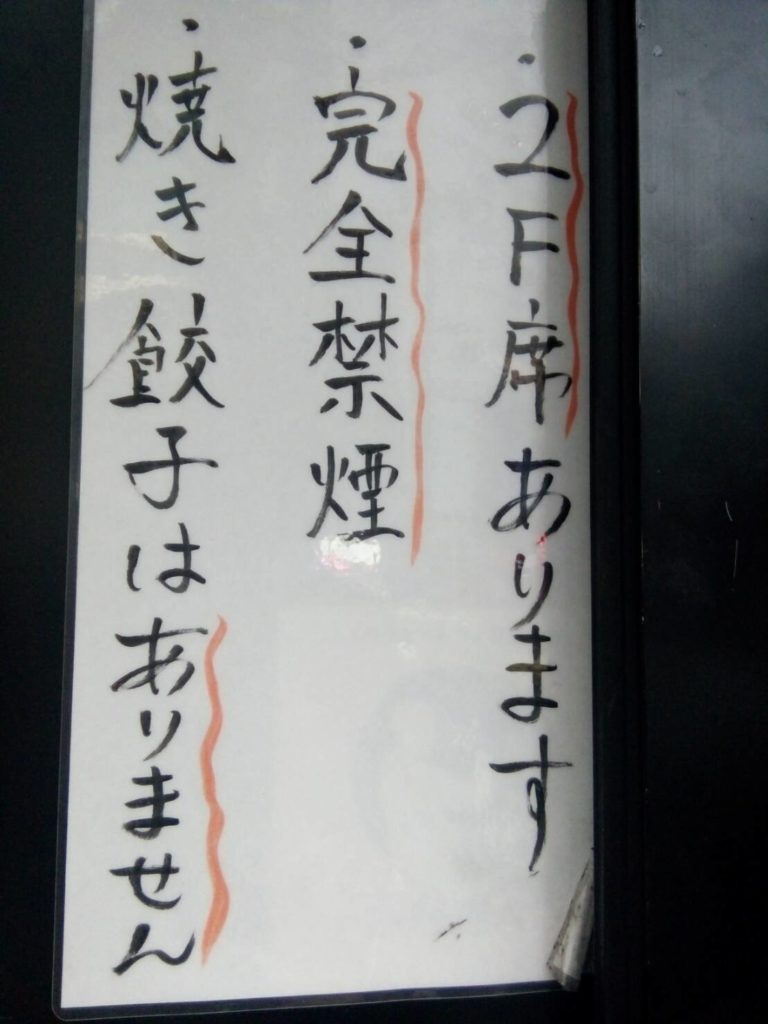 ・2F席あります
・完全禁煙
・焼き餃子はありません